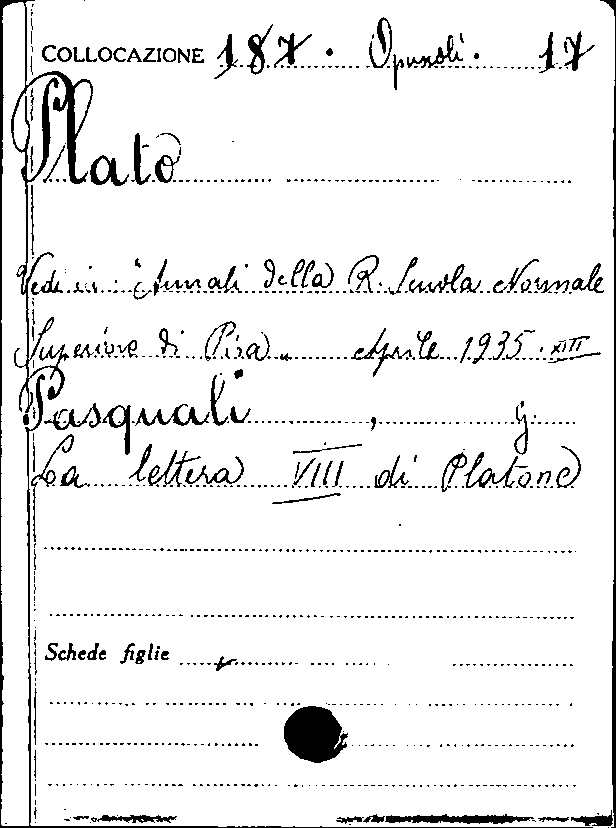 COLLOCAZIONE 187. Opuscoli. 17
Plato
Vedi in: "Annali della R. Scuola Normale
Superiore di Pisa„ Aprile 1935. XIII
Pasquali, G.
La lettera VIII di Platone
Schede figlie